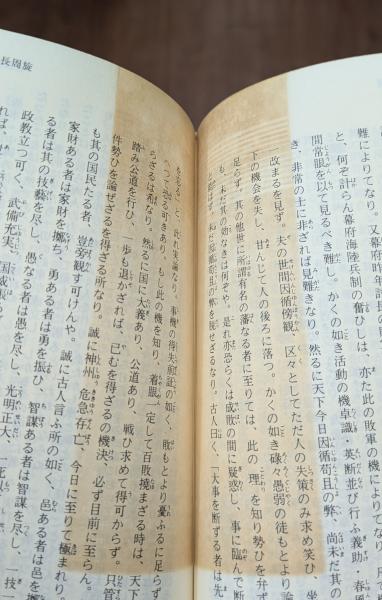 難によりてなり。又幕府時
と、何ぞ計らん又幕府海陸兵制の奮ひしは、亦た此の敗軍の機によりてなり、
間常眼を以て見るべき難し。かくの如き活動の機卓識・英断並び行ふ義助、春
き、非常の士に非ざれば見難きなり。然るに天下今日因循苟且の弊、尚未だ其の
一改まるを見ず。夫の世間因循傍観、区々としてただ人の失策のみ求め笑ひ、坐
下の機会を失し、甘んじて人の後ろに落つ。かくの如き碌々愚弱の徒もとより論
足らず。其の他世に所謂有名の藩なる者に至りては、此の理を知り勢ひを弁ず
も、未だ其の効なきは何ぞや。是れ亦恐らくは成敗の間に疑惑し、事に臨んで断
古人曰く、「大事を断ずる者は先
と。此れ実論なり、事機の得失前証の如く、敗もとより憂ふるに足らず
もし此の機を知り、着眼一定して百敗撓まざる時は、天下
らざるは希なり。然るに国に大義あり、公道あり、戦ひ求めて得可からず。只管
踏み公道を行ひ、一歩も退かざれば、已むを得ざるの機決、必ず目前に至らん。
件勢ひを論ぜざるを得ざる所なり。誠に神州、危急存亡、今日に至りて極まれり。
も其の国民たる者、豈傍観す可けんや。誠に古人言ふ所の如く、邑ある者は邑を擲
家財ある者は家財を擲ち、勇ある者は勇を振ひ、智謀ある者は智謀を尽し、
る者は其の技藝を尽し、愚なる者は愚を尽し、光明正大、
政教立つ可く、武備充実、
長周旋